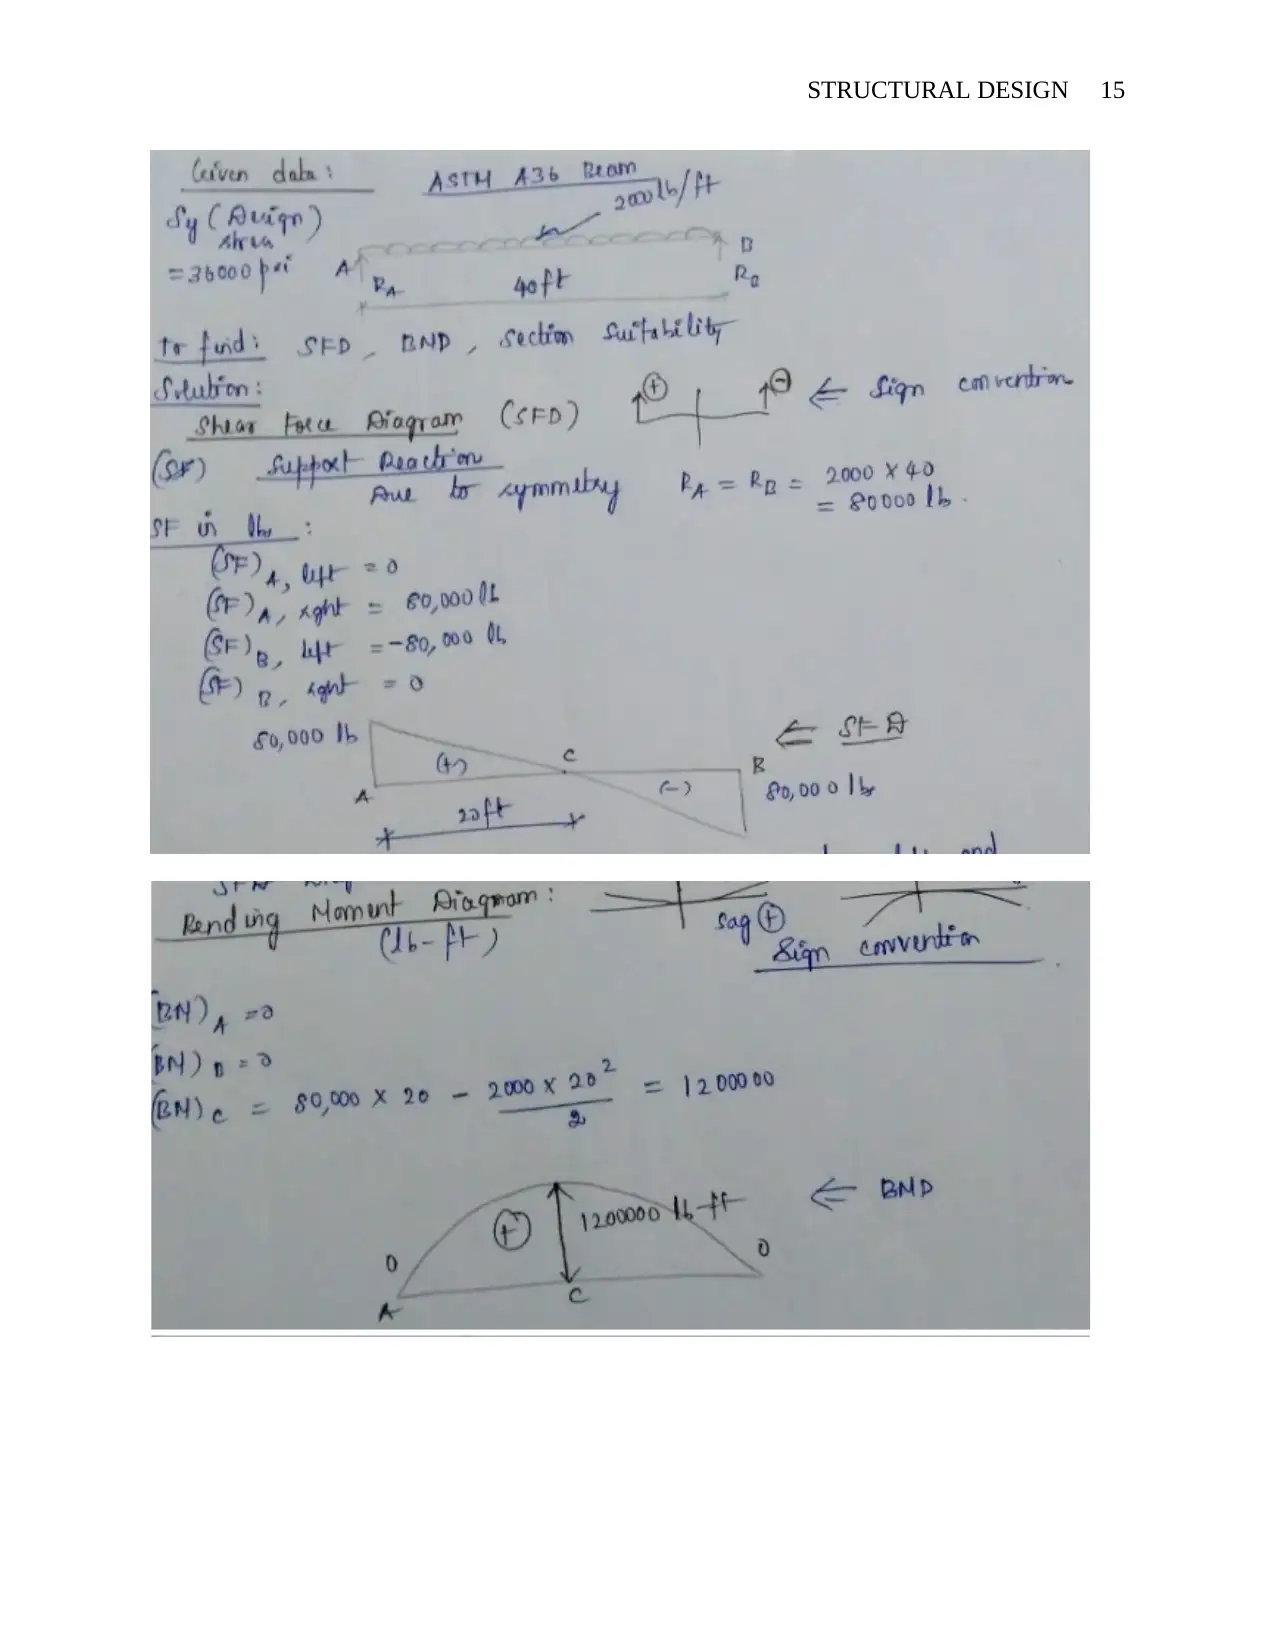 STRUCTURAL DESIGN 15
Given data :
ASTM A36 Beam
2000 lb/ft
Sy (Design)
stress
= 36000 psi
A
B
RA
40ft
RB
to find : SFD , BMD , section suitability
Solution :
+ - ⇐ Sign convention
Shear Force Diagram (SFD)
(SF) Support Reaction
Due to symmetry RA = RB = 2000 X 40
= 80000 lb .
SF in lbs :
(SF) A, left = 0
(SF) A, right = 80,000 lb
(SF) B, left = -80,000 lb
(SF) B, right = 0
80,000 lb
⇐ SFD
(+)
C
B
(-)
80,000 lbs
A
20ft
and
Bending Moment Diagram :
(lb-ft)
sag +
Sign convention
(BM) A = 0
(BM) B = 0
(BM) C = 80,000 X 20 - 2000 X 20² = 1200000
2
⇐ BMD
+
1200000 lb-ft
0
0
A
C